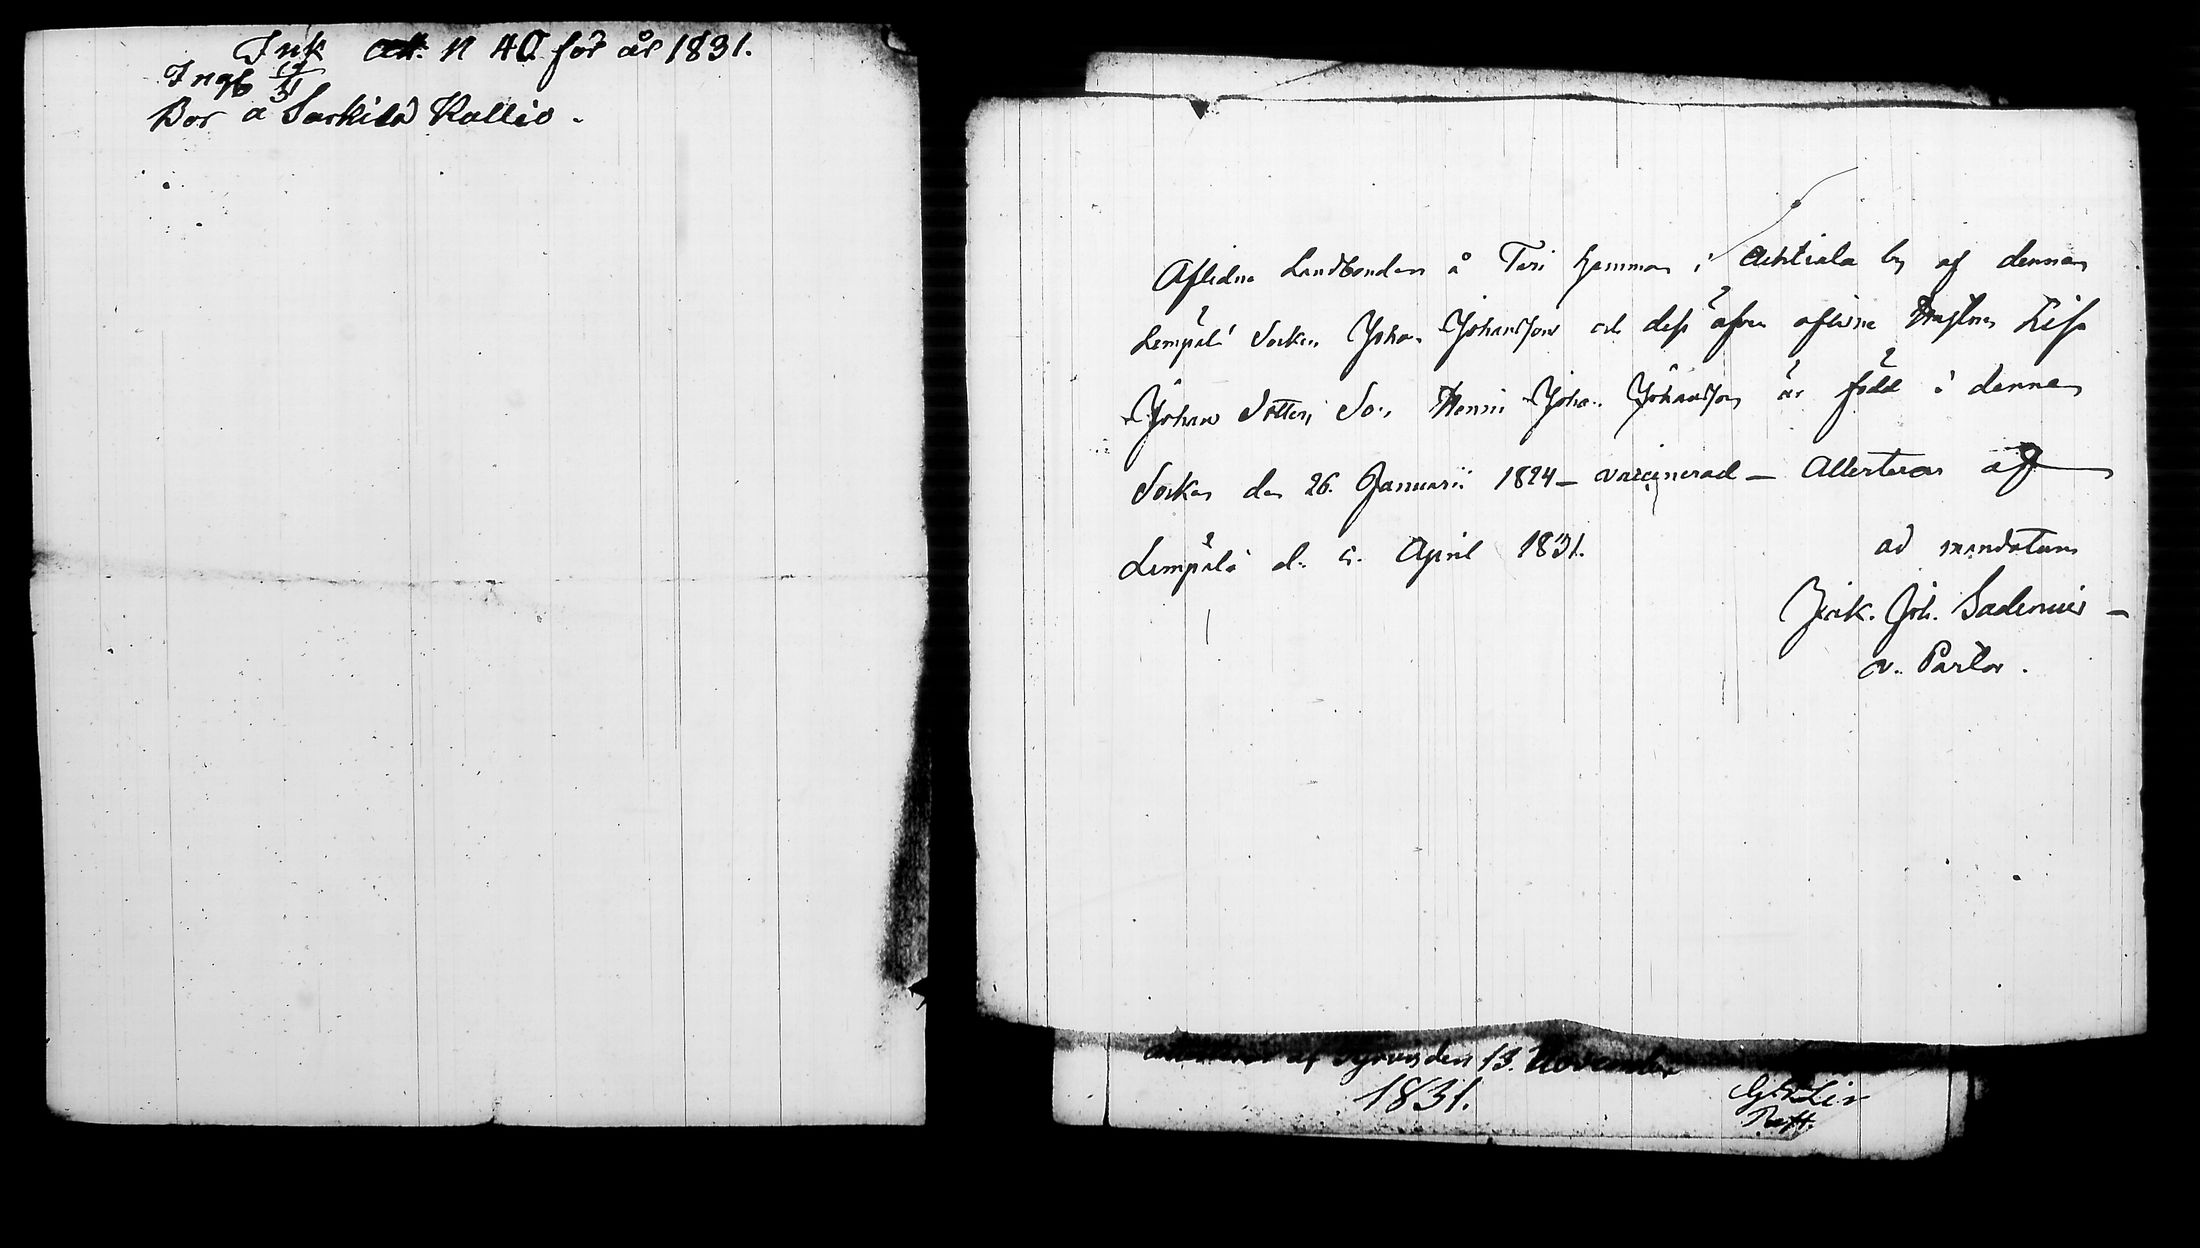 Ink att. N 40 för år 1831.
Ingf
Bor å Sarkila Kallio.
Aflidne Landbonden å Teri hemman i Ahtiala by af denna
Lempälä Socken Johan Johansson och dess äfven aflidne Hustru Lisa
Johans Dotters Son Henric Johan Johansson är född i denna
Socken den 26. Januarii 1824 – vaccinerad – Attesteras af
Lempälä d. 5. April 1831.
ad mandatum
Joh.
v. Pastor.
af Tyrvis den 13. November
1831.